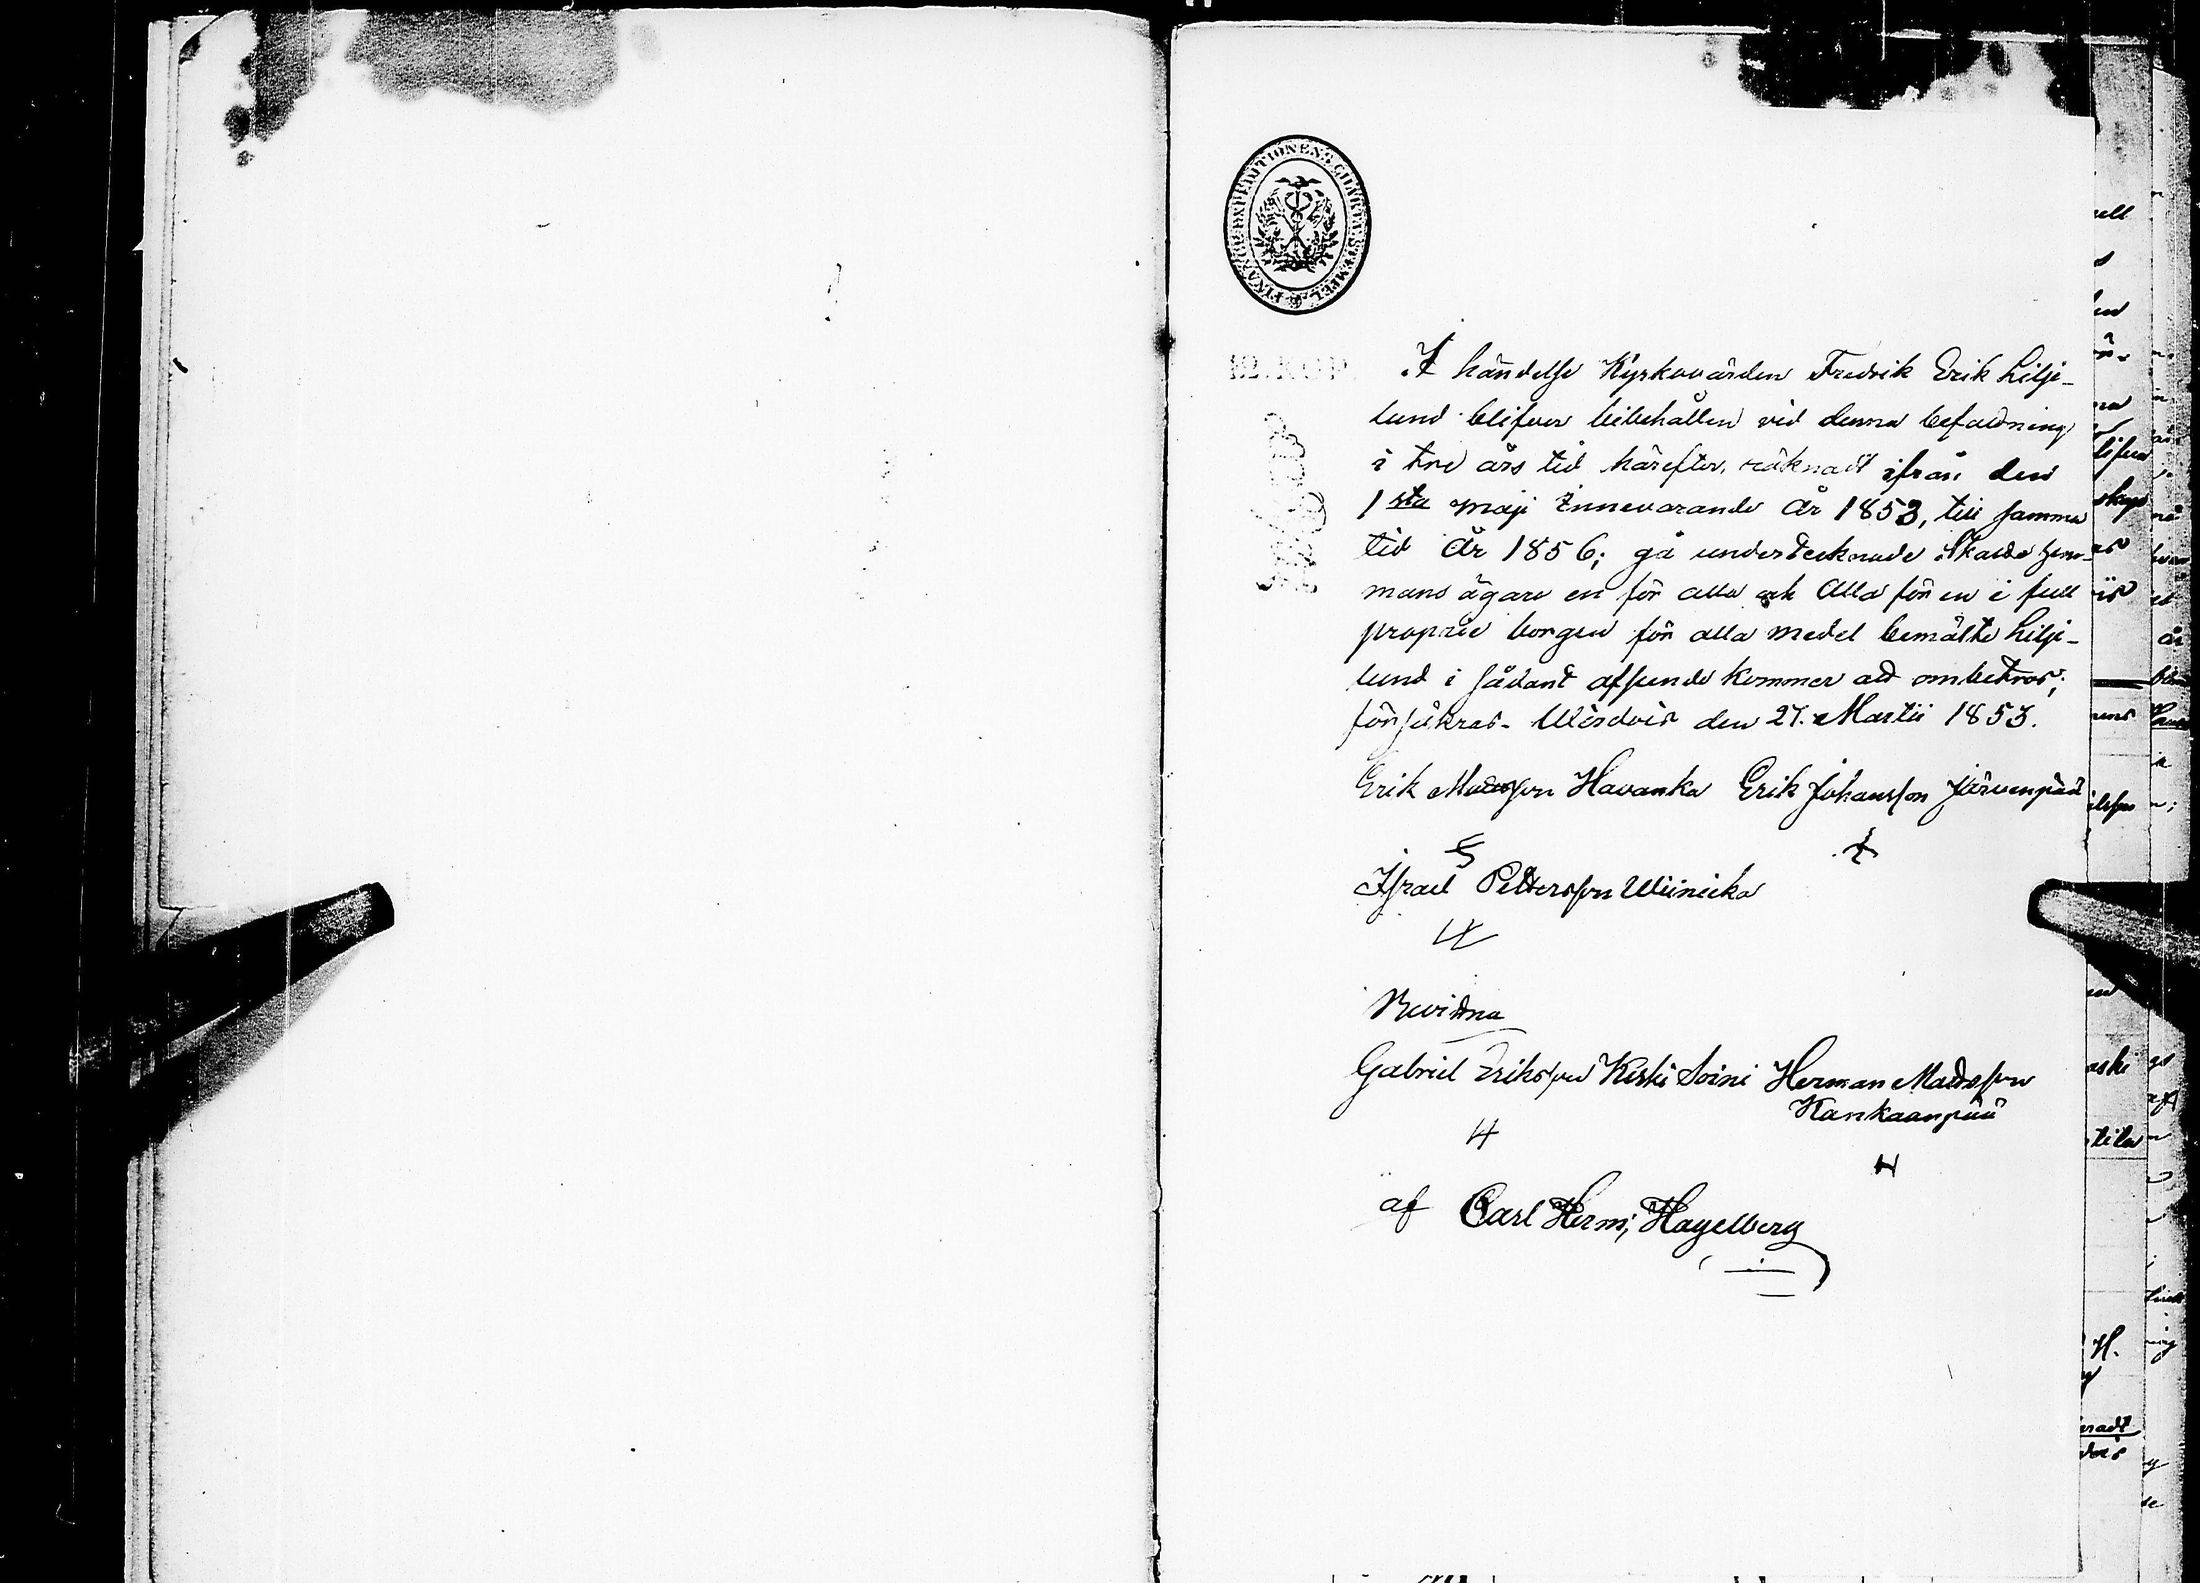 FINANCE EXPEDITIONENS CHARTÆ STEMPEL
12. KOP.
I händelse Kyrkovärden Fredrik Erik Lilje-
lund blifver bibehållen vid denna befattning
i tre års tid härefter, räknadt ifrån den
1sta Maji innevarande år 1853, till samma
tid år 1856; gå undertecknade Skatte hem-
mans ägare en för alla och alla för en i full
proprie borgen för alla medel bemälte Lilje-
lund i sådant afseende kommer att ombetros;
försäkras. Wirdois den 27. Martii 1853.
Erik Mattsson Havanka Erik Johansson Järvenpää
Israel Pettersson Wiinicka
Bevittna
Gabriel Eriksson Keski Soini Herman Mattsson
Kankaanpää
af Carl Herm; Hagelberg